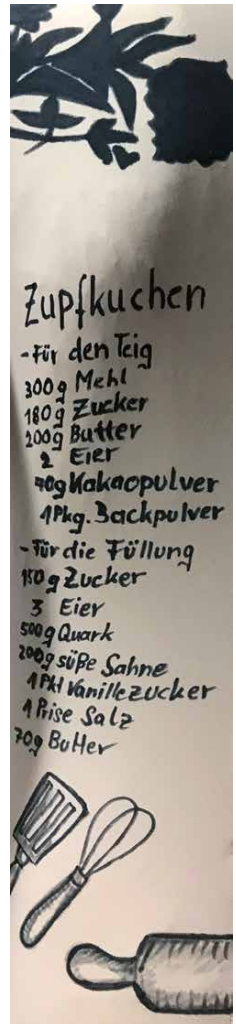 Zupfkuchen
- Für den Teig
300g Mehl
180g Zucker
200g Butter
2 Eier
40g Kakaopulver
1Pkg. Backpulver
- Für die Füllung
150g Zucker
3 Eier
500g Quark
200g süße Sahne
1 Pkt Vanillezucker
1 Prise Salz
70g Butter